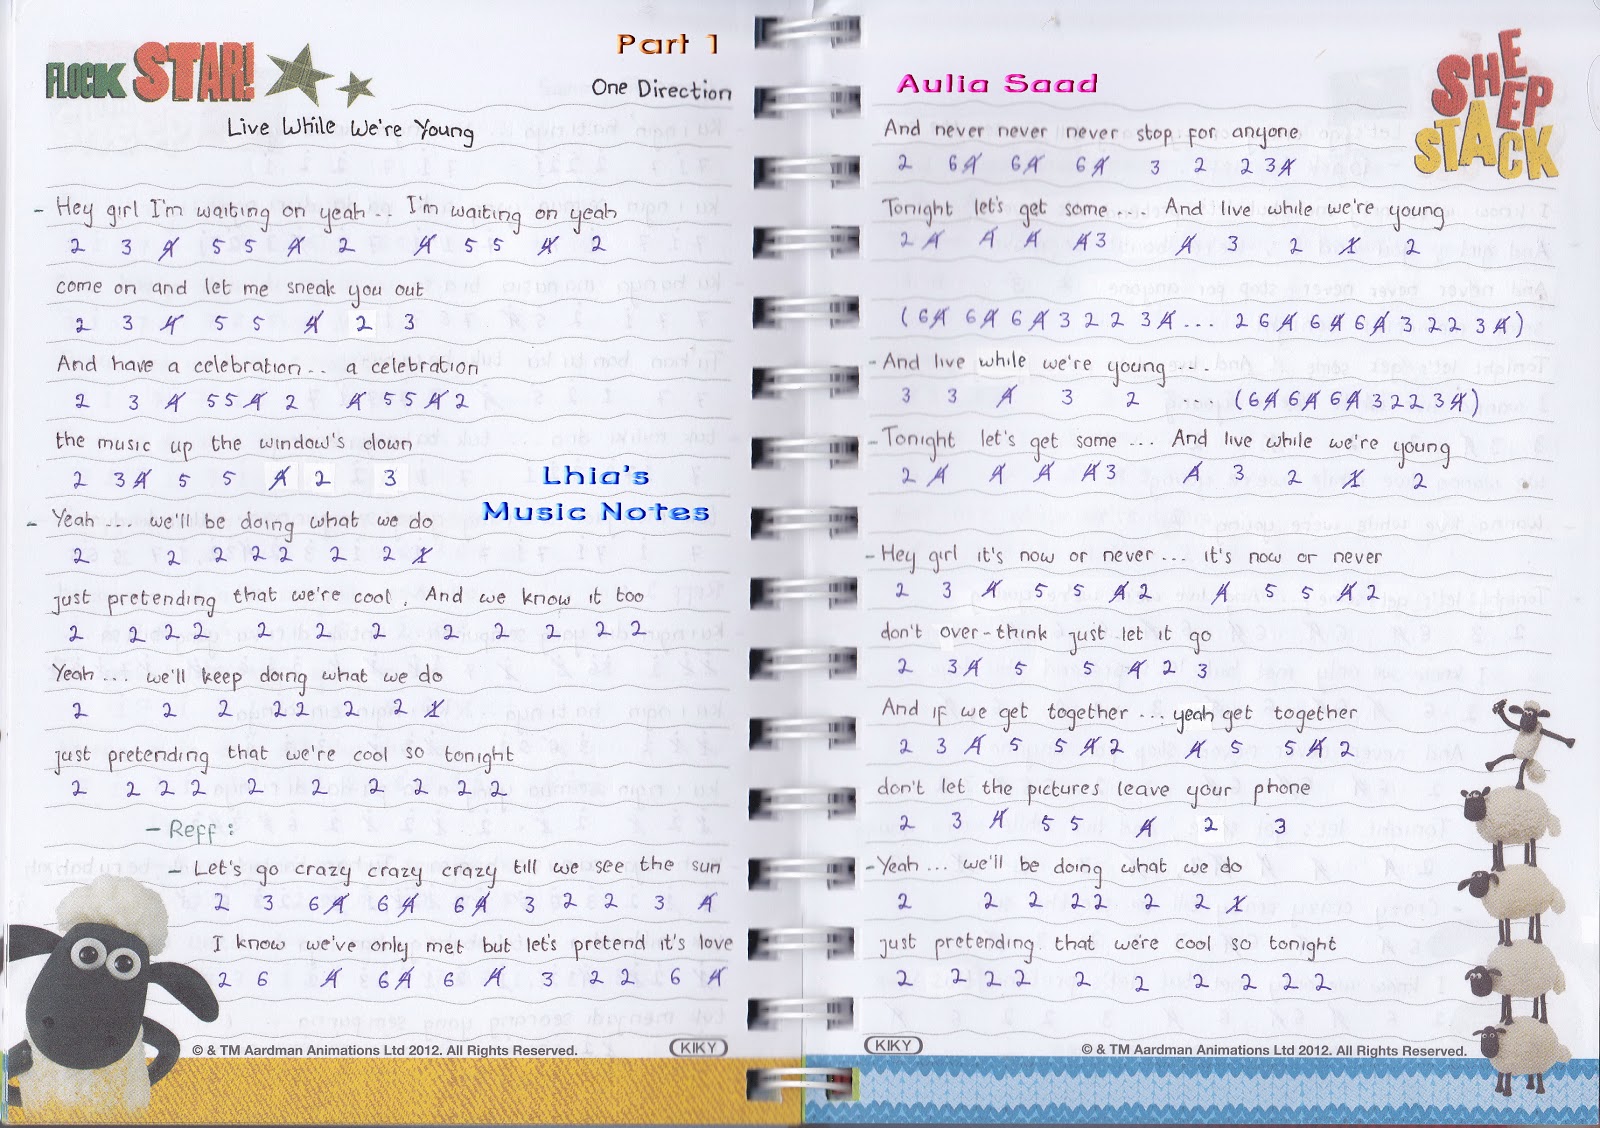 FLOCK STAR!
Part 1
One Direction
Live While We're Young
- Hey girl I'm waiting on yeah.. I'm waiting on yeah
2 3 4̸ 5 5 4̸ 2 4̸ 5 5 4̸ 2
come on and let me sneak you out
2 3 4̸ 5 5 4̸ 2 3
And have a celebration.. a celebration
2 3 4̸ 5 5 4̸ 2 4̸ 5 5 4̸ 2
the music up the window's down
2 3 4̸ 5 5 4̸ 2 3
Lhia's
Music Notes
- Yeah... we'll be doing what we do
2 2 2 2 2 2 2 1̸
just pretending that we're cool. And we know it too
2 2 2 2 2 2 2 2 2 2 2 2
Yeah... we'll keep doing what we do
2 2 2 2 2 2 2 1̸
just pretending that we're cool so tonight
2 2 2 2 2 2 2 2 2 2
- Reff :
- Let's go crazy crazy crazy till we see the sun
2 3 6 4̸ 6 4̸ 6 4̸ 3 2 2 3 4̸
I know we've only met but let's pretend it's love
2 6 4̸ 6 4̸ 6 4̸ 3 2 2 6 4̸
© & TM Aardman Animations Ltd 2012. All Rights Reserved.
KIKY
Aulia Saad
SHEEP STACK
And never never never stop for anyone
2 6 4̸ 6 4̸ 6 4̸ 3 2 2 3 4̸
Tonight let's get some.... And live while we're young
2 4̸ 4̸ 4̸ 4̸ 3 4̸ 3 2 1̸ 2
(6 4̸ 6 4̸ 6 4̸ 3 2 2 3 4̸ ... 2 6 4̸ 6 4̸ 6 4̸ 3 2 2 3 4̸)
- And live while we're young....
3 3 4̸ 3 2 .... (6 4̸ 6 4̸ 6 4̸ 3 2 2 3 4̸)
- Tonight let's get some ... And live while we're young
2 4̸ 4̸ 4̸ 4̸ 3 4̸ 3 2 1̸ 2
- Hey girl it's now or never... it's now or never
2 3 4̸ 5 5 4̸ 2 4̸ 5 5 4̸ 2
don't over-think just let it go
2 3 4̸ 5 5 4̸ 2 3
And if we get together... yeah get together
2 3 4̸ 5 5 4̸ 2 4̸ 5 5 4̸ 2
don't let the pictures leave your phone
2 3 4̸ 5 5 4̸ 2 3
- Yeah... we'll be doing what we do
2 2 2 2 2 2 2 1̸
just pretending that we're cool so tonight
2 2 2 2 2 2 2 2 2 2
KIKY
© & TM Aardman Animations Ltd 2012. All Rights Reserved.